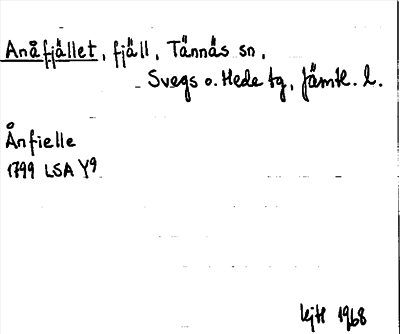 Anåfjället, fjäll, Tännäs sn,
Svegs o. Hede tg, Jämtl. l.
Ånfielle
1799 LSA Y9
1968